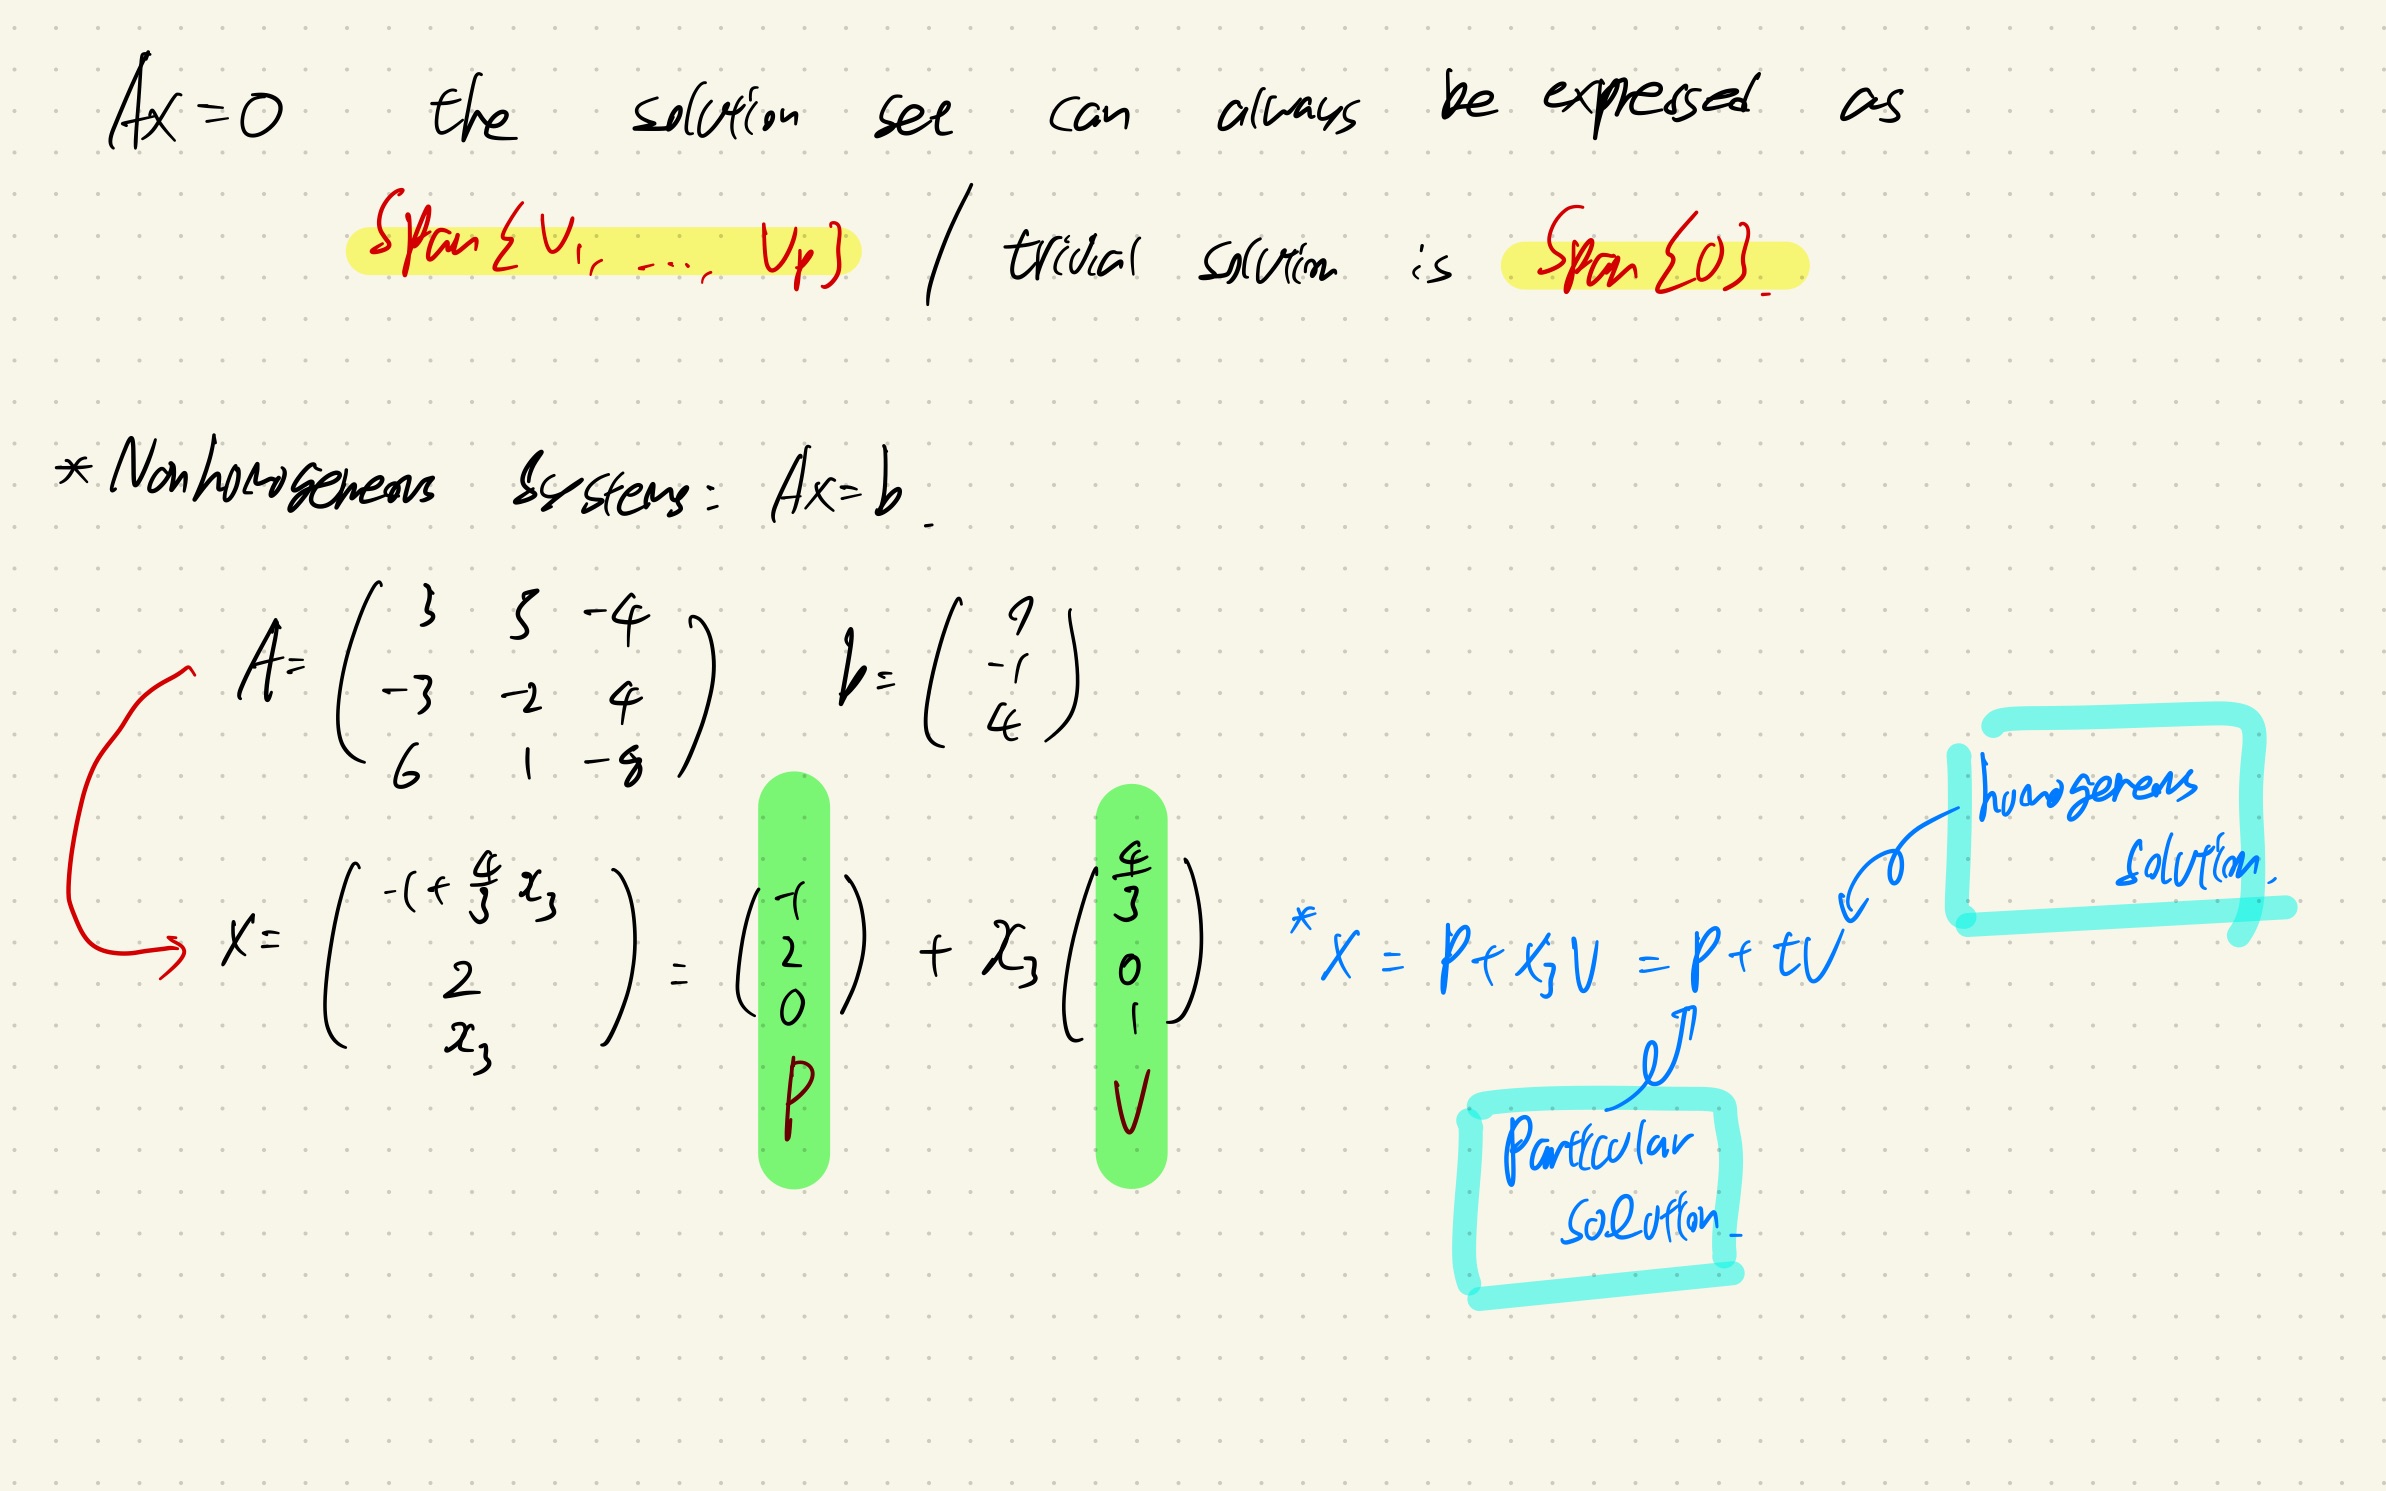 Ax=0 the solution set can always be expressed as
Span{V₁, ..., Vp} / trivial solution is Span{0}.
*Nonhomogeneous Systems: Ax=b.
A= ( 3 5 -4
-3 -2 4
6 1 -8 )
b= ( 7
-1
4 )
x= ( -1 + 4/3 x₃
2
x₃ )
= ( -1
2
0 )
P
+ x₃ ( 4/3
0
1 )
V
* x = P + x₃V = P + tV
homogeneous
solution.
Particular
solution.